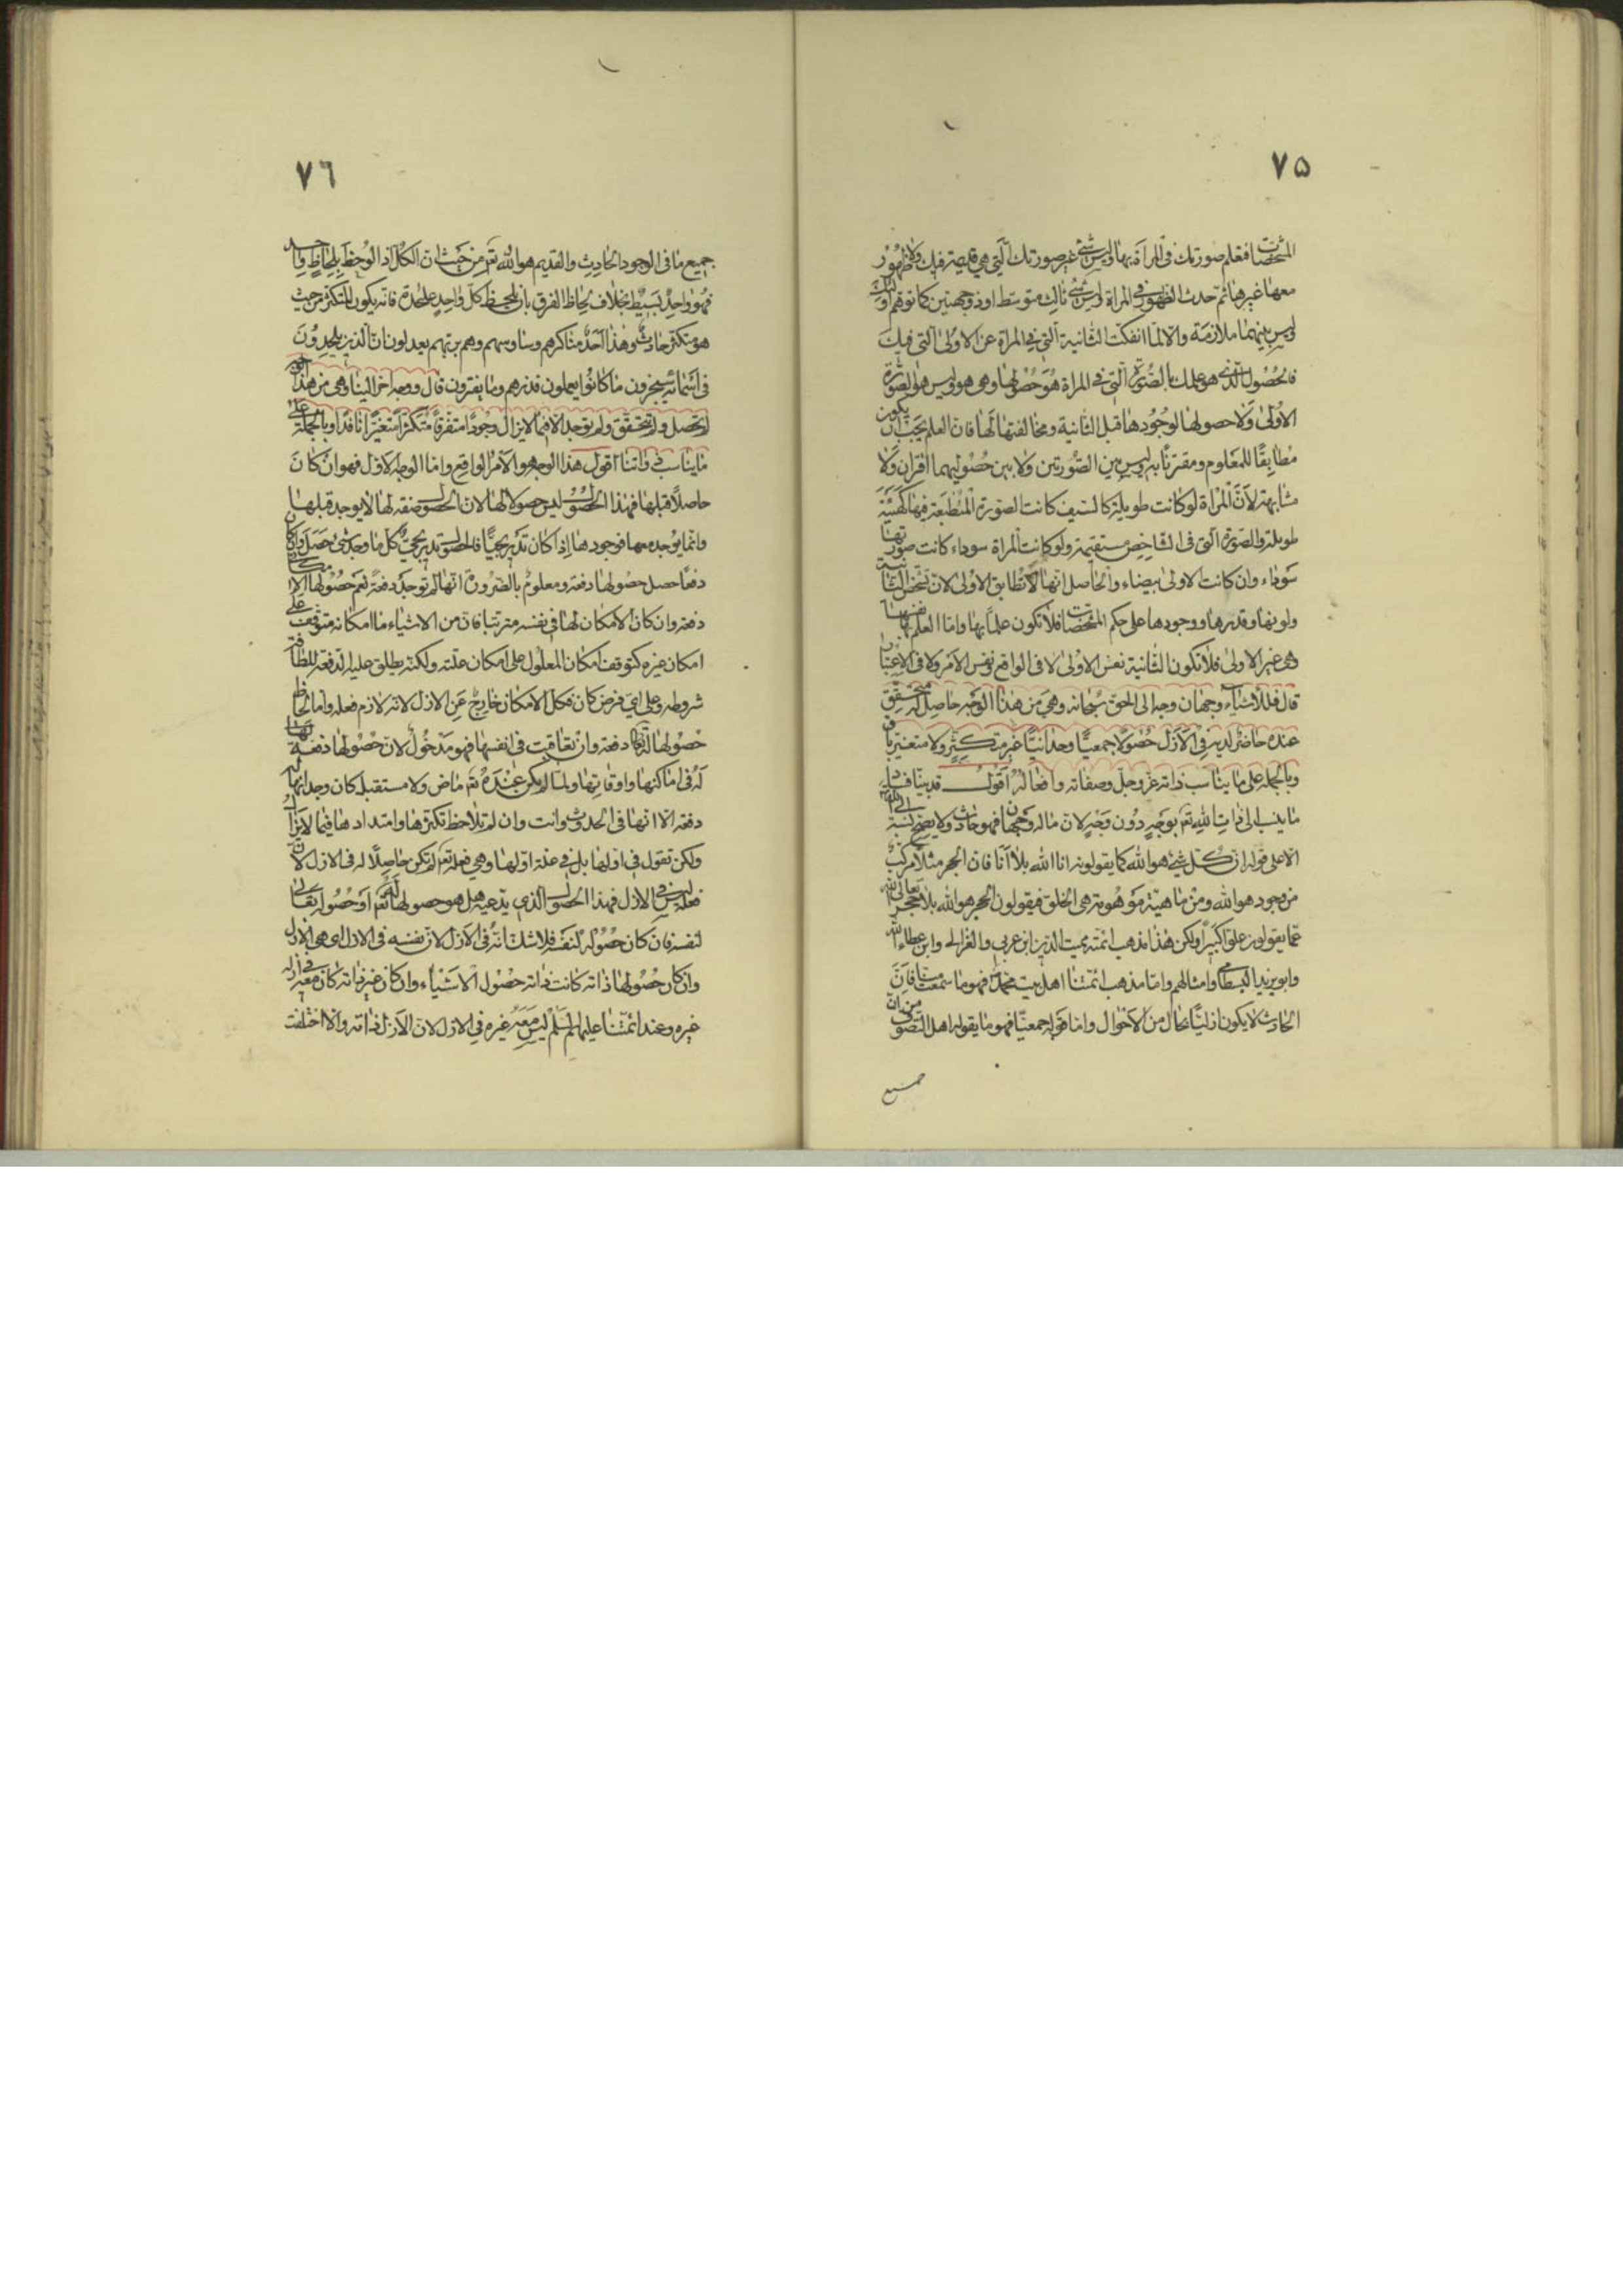 ٧٥
المشخصات فتعلم صورتك في المرآة بها وليس شئ غير صورتك التي هي قديمة فيك ولا ظهور
معها غيرها ثم حدث الظهور في المراة وليس شئ ثالث متوسط او ذو جهتين كما توهم اولئك
ليس بينهما ملازمة والا لما انفكت الثانية التي في المراة عن الاولى التي فيك
فالحصول الذي هو علمك بالصورة التي في المراة هو حصولها وهي هو وليس هو الصورة
الاولى ولا حصولها لوجودها قبل الثانية ومخالفتها لها فان العلم يجب ان يكون
مطابقا للمعلوم ومقترنا به وليس بين الصورتين ولا بين حصوليهما اقتران ولا
مشابهة لان المراة لو كانت طويلة كالسيف كانت الصورة المنطبعة فيها كهيئته
طويلة والصورة التي في الشاخص مستقيمة ولو كانت المراة سوداء كانت صورتها
سوداء وان كانت الاولى بيضاء والحاصل انها لا تطابق الاولى لان تشخص الثانية
ولونها وقدرها ووجودها على حكم المشخصات فلا تكون علما بها واما العلم بها نفسها
هي غير الاولى فلا تكون الثانية نفس الاولى لا في الواقع ونفس الامر ولا في الاعتبار
قال فللأشياء وجهان وجه الى الحق سبحانه وهي من هذا الوجه حاصل له متحقق
عنده حاضر لديه في الازل حصولا جمعيا وحدانيا غير متكثر ولا متغير باق
وبالجملة على ما يناسب ذاته عز وجل وصفاته وافعاله اقول قد بينا فساد
ما ينسب الى ذات الله تع بوجه دون وجه لان ما له وجهان فهو حادث ولا يصح نسبته الى الله
الا على قوله ان كل شئ هو الله كما يقولونه انا الله بلا انا فان الحجر مثلا مركب
من وجود هو الله ومن ماهية موهومة هي الخلق فيقولون الحجر هو الله بلا حجر تعالى الله
عما يقولون علوا كبيرا ولكن هذا مذهب ائمته مميت الدين ابن عربي والغزالي وابن عطاء الله
وابو يزيد البسطامي وامثالهم واما مذهب ائمتنا اهل بيت محمد فهو ما سمعت منا فان
الحادث لا يكون ازليا بحال من الاحوال واما قوله جمعيا فهو ما يقوله اهل التصوف من ان
جميع
٧٦
جميع ما في الوجود الحادث والقديم هو الله تع من حيث ان الكل اذا لوحظ بلحاظ واحد
فهو واحد بسيط بخلاف لحاظ الفرق بان يلحظ كل واحد على حدة فانه يكون المتكثر من حيث
هو متكثر حادث وهذا احد مناكرهم ووساوسهم وهم بربهم يعدلون ان الذين يلحدون
في اسمائه سيجزون ما كانوا يعملون فذرهم وما يفترون قال ووجه اخر الينا وهي من هذا الوجه
لم تحصل ولم تتحقق ولم توجد الا فيما لا يزال وجودا متفرقا متكثرا متغيرا نافدا وبالجملة على
ما يناسب ذواتنا اقول هذا الوجه هو الامر الواقع واما الوجه الاول فهو ان كان
حاصلا قبلها فهذا الحصول ليس حصولا لها لان الحصول صفة لها لا يوجد قبلها
وانما يوجد معها فوجودها اذا كان تدريجيا فالحصول تدريجي كل ما وجد شئ حصل وان كان
دفعا حصل حصولها دفعة ومعلوم بالضرورة انها لم توجد دفعة نعم حصولها الامكاني
دفعة وان كان الامكان لها في نفسه مترتبا فان من الاشياء ما امكانه متوقف على
امكان غيره كتوقف امكان المعلول على امكان علته ولكنه يطلق عليه الدفعة للطافة
شروطه وعلى اي فرض كان فكل الامكان خارج عن الازل لانه لازم فعله واما لحاظ
حصولها له تعالى دفعة وان تعاقبت في انفسها فهو مدخول لان حصولها دفعة لها
له في اماكنها واوقاتها ولما لم يكن عنده تع ماض ولا مستقبل كان وجدانها له
دفعة الا انها في الحدوث وانت وان لم تلاحظ تكثرها وامتدادها فيما لا يزال
ولكن تقول في اولها بل في علة اولها وهي فعله تع لم تكن حاصلا له في الازل لان
فعله ليس في الازل فهذا الحصول الذي يدعيه هل هو حصولها له تع او حصوله تعالى
لنفسه فان كان حصوله لنفسه فلا شك انه في الازل لان نفسه في الازل اي هي الازل
وان كان حصولها ذاته كانت ذاته حصول الاشياء وان كان غير ذاته كان معه في ازله
غيره وعند ائمتنا عليهم السلم ليس معه غيره في الازل لان الازل ذاته والا اختلفت